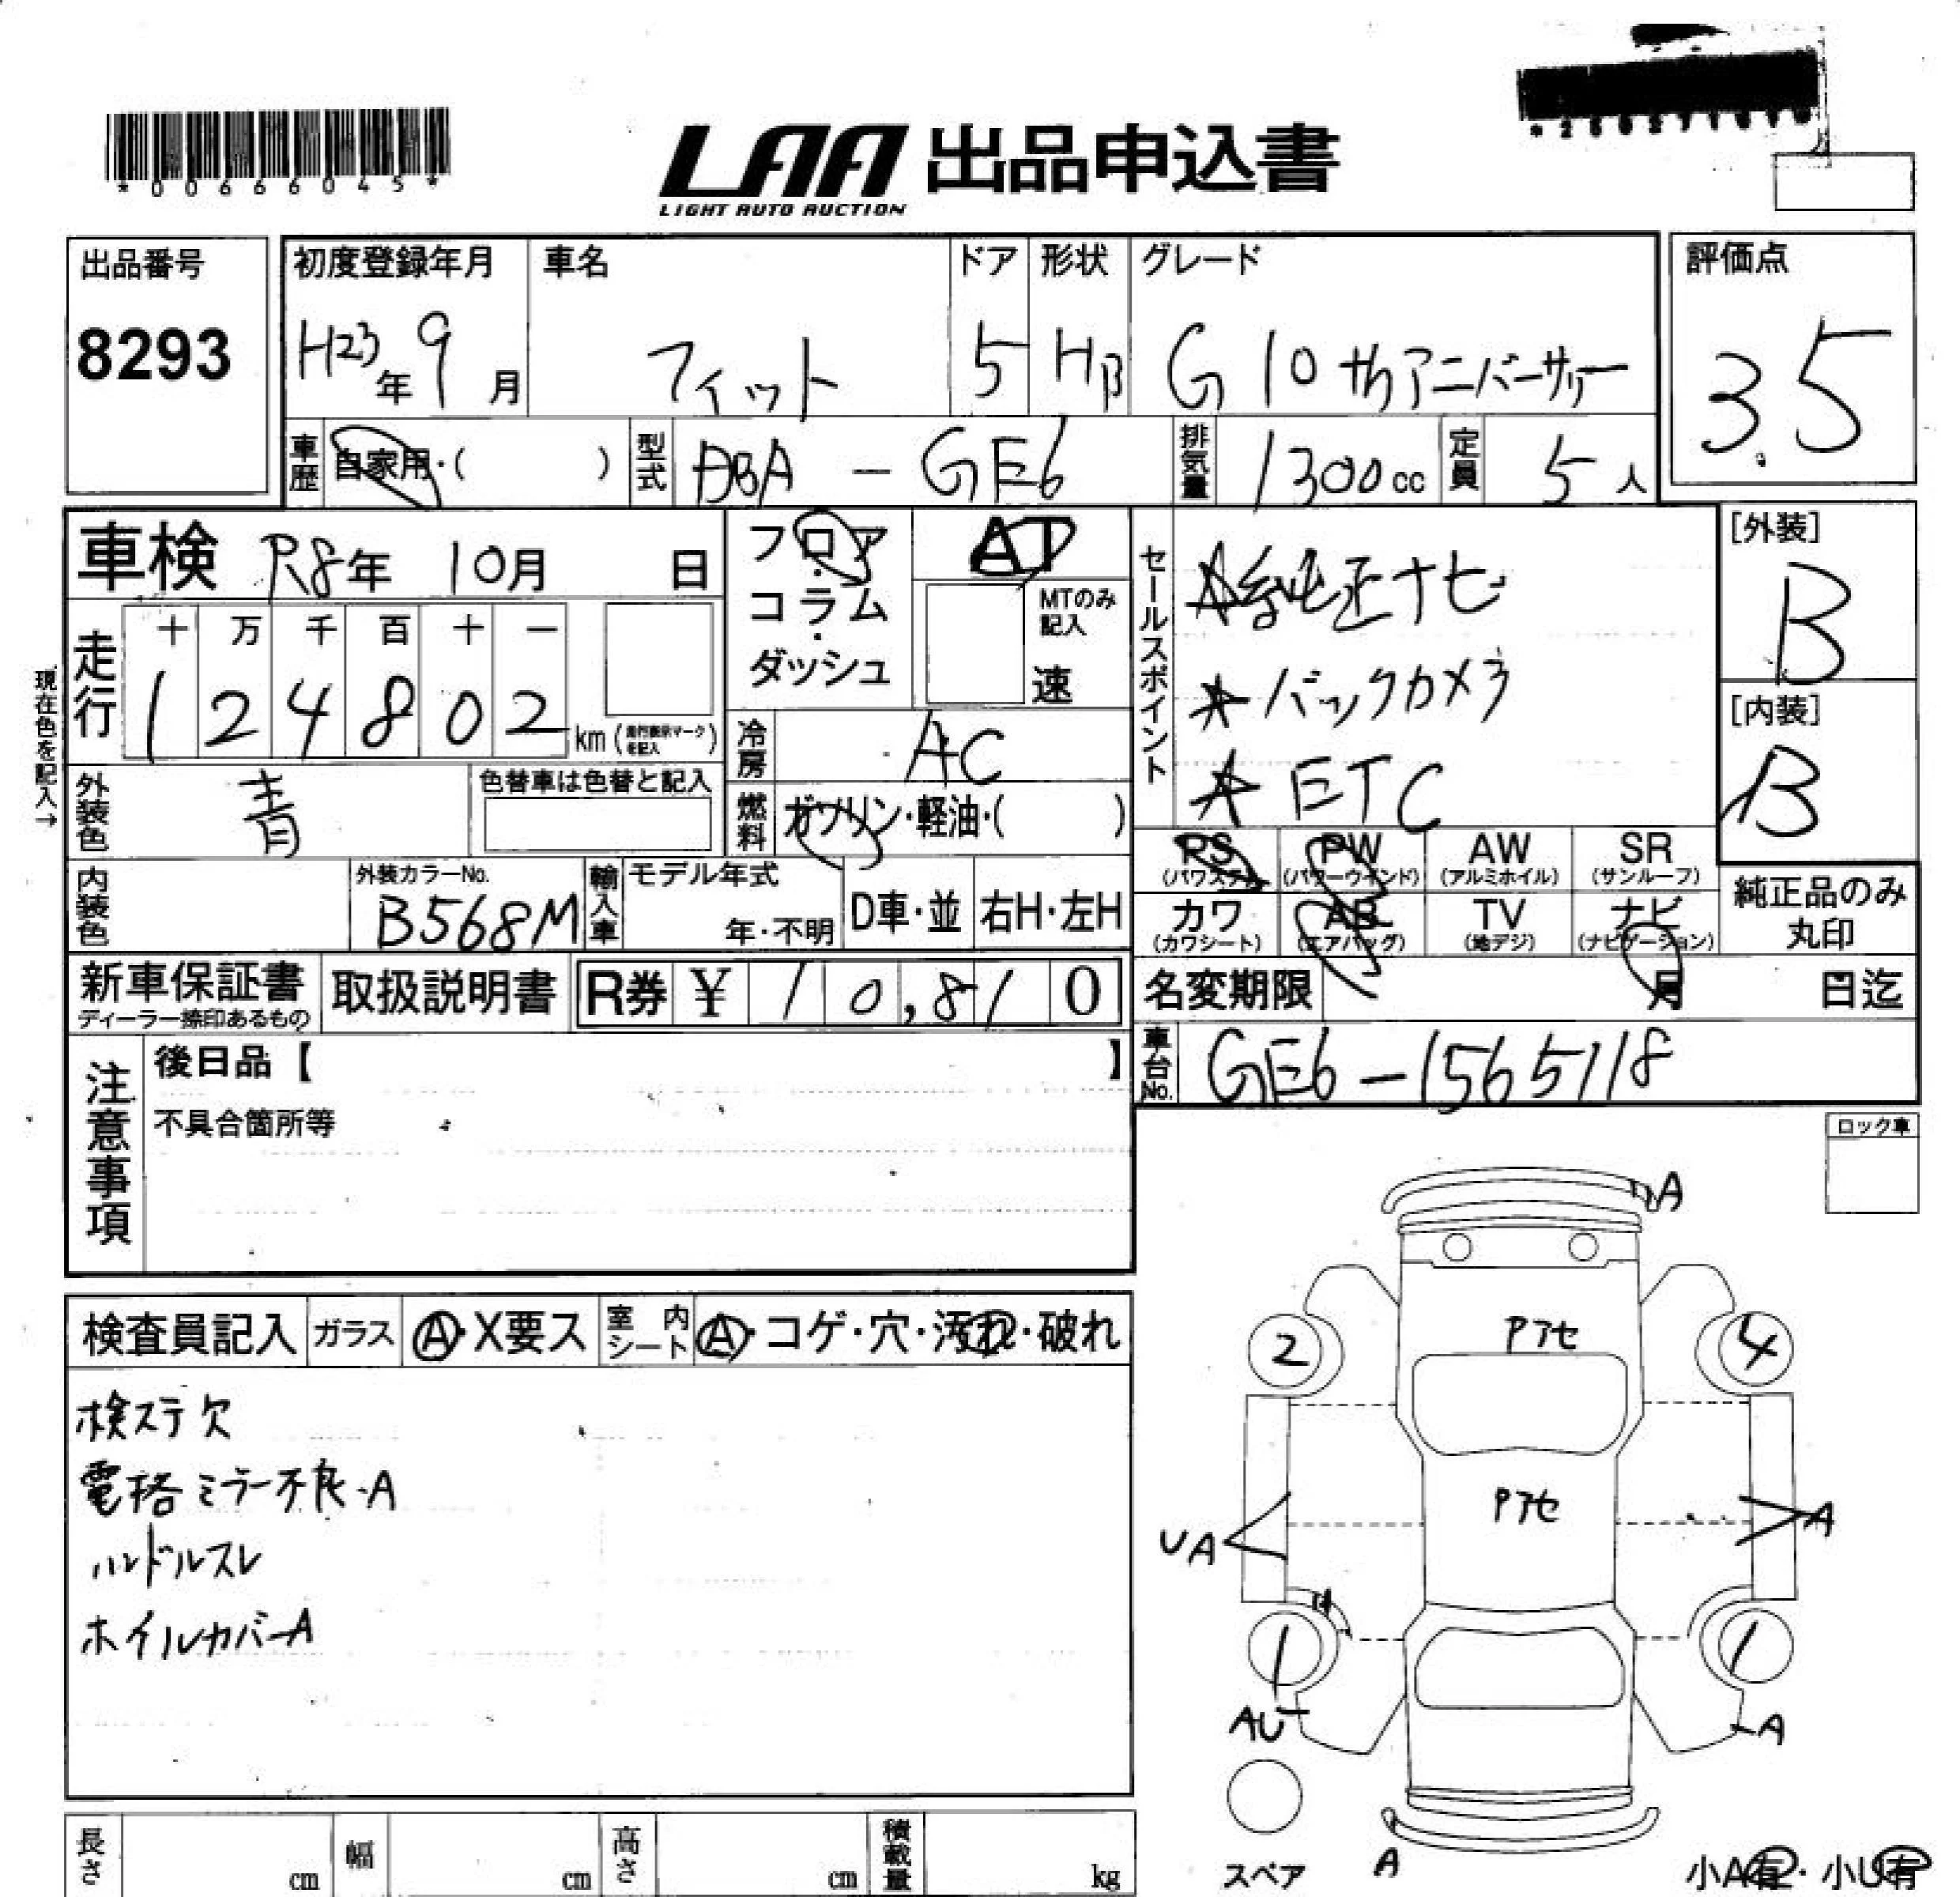 *00666045*
LAA 出品申込書
LIGHT AUTO AUCTION
出品番号
8293
初度登録年月
H23年 9月
車名
フィット
ドア
5
形状
HB
グレード
G 10thアニバーサリー
評価点
3.5
車歴
自家用・( )
型式
DBA - GE6
排気量
1300cc
定員
5人
車検 R8年 10月 日
フロア・コラム・ダッシュ
AT
MTのみ記入
速
セールスポイント
★純正ナビ
★バックカメラ
★ETC
[外装]
B
[内装]
B
現在色を記入→
走行
十 万 千 百 十 一
1 2 4 8 0 2 km (走行表示マークを記入)
冷房
AC
外装色
青
色替車は色替と記入
燃料
ガソリン・軽油・( )
内装色
外装カラーNo.
B568M
輸入車
モデル年式
年・不明
D車・並
右H・左H
PS (パワステ)
PW (パワーウインド)
AW (アルミホイル)
SR (サンルーフ)
カワ (カワシート)
AB (エアバッグ)
TV (地デジ)
ナビ (ナビゲーション)
純正品のみ丸印
新車保証書
ディーラー捺印あるもの
取扱説明書
R券 ¥ 10,810
名変期限 月 日迄
車台No.
GE6-1565118
注意事項
後日品【 】
不具合箇所等
ロック車
検査員記入
ガラス
A・X要ス
室内シート
A・コゲ・穴・汚れ・破れ
検ステ欠
電格ミラー不良・A
ハンドルスレ
ホイルカバーA
A
Pアセ
2
4
Pアセ
UA
A
1
1
AU
A
スペア
A
小A有・小U有
長さ cm
幅 cm
高さ cm
積載量 kg